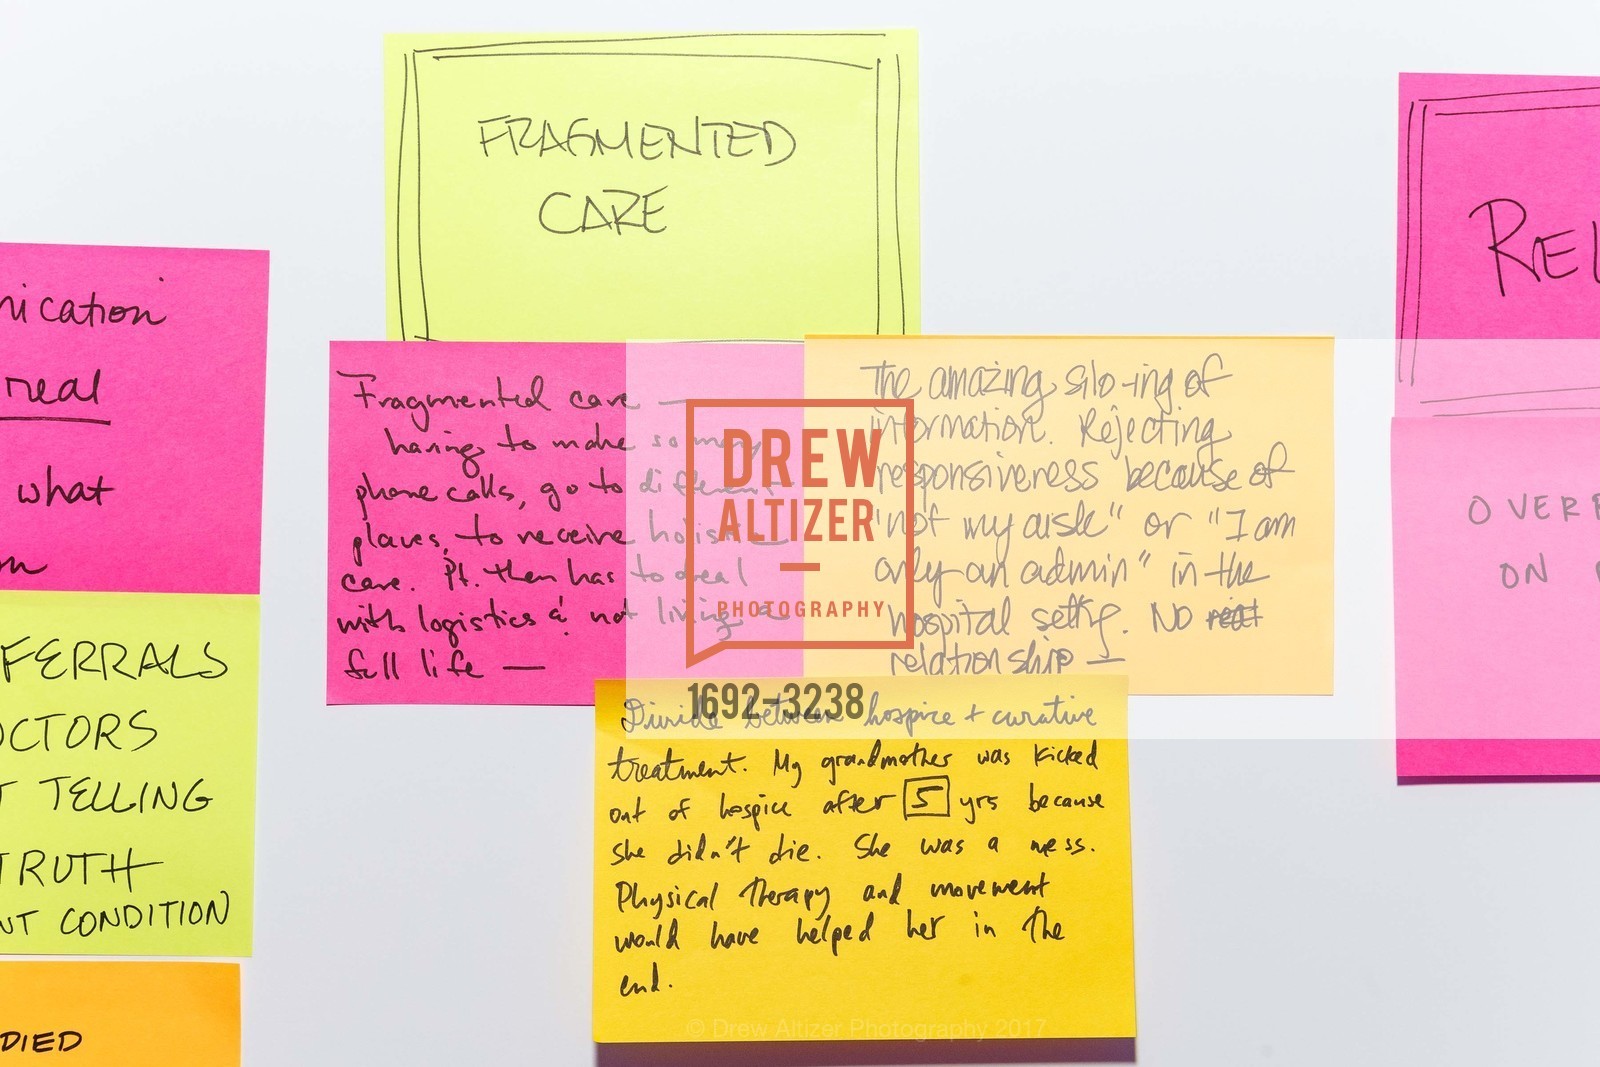 FRAGMENTED
CARE
nication
real
what
FERRALS
OCTORS
T TELLING
TRUTH
NT CONDITION
DIED
Fragmented care —
having to make so many
phone calls, go to different
places, to receive holistic
care. Pt. then has to deal
with logistics & not living a
full life —
The amazing silo-ing of
information. Rejecting
responsiveness because of
"not my aisle" or "I am
only an admin" in the
hospital setting. No
relationship —
Divide between hospice + curative
treatment. My grandmother was kicked
out of hospice after 5 yrs because
she didn't die. She was a mess.
Physical Therapy and movement
would have helped her in the
end.
REL
OVER
ON
DREW
ALTIZER
PHOTOGRAPHY
1692-3238
© Drew Altizer Photography 2017